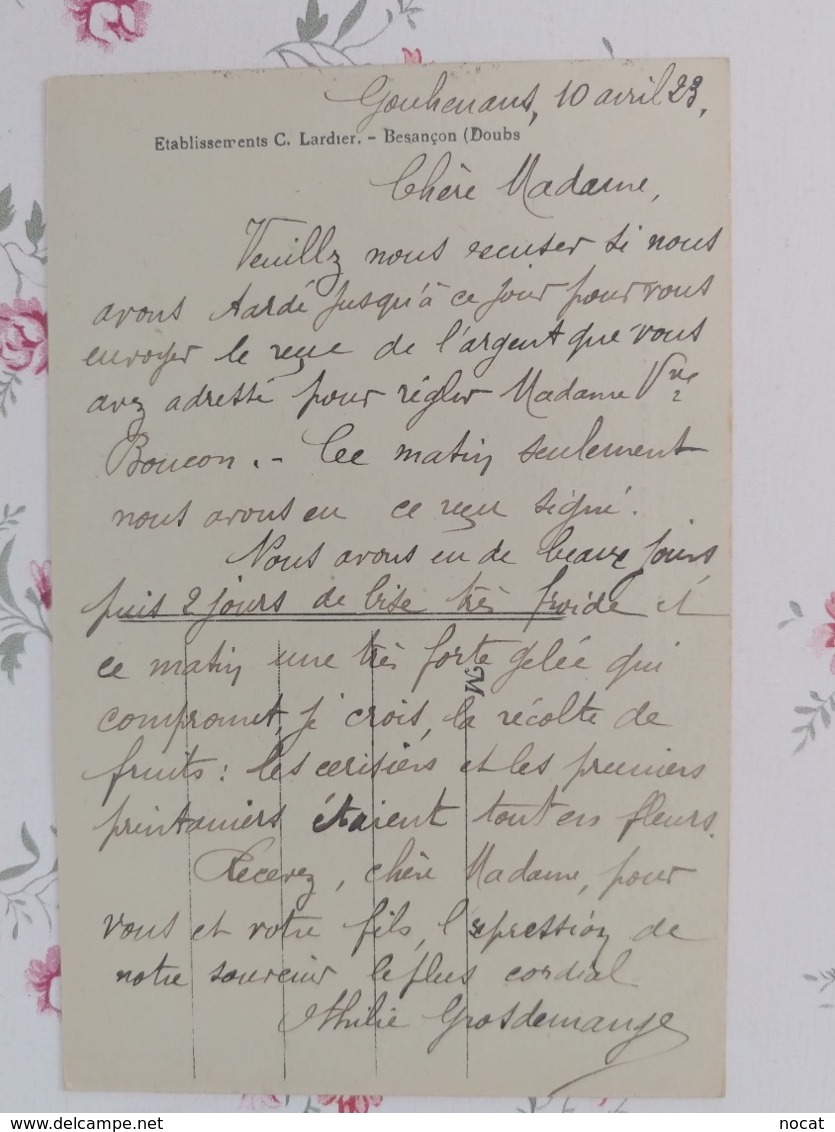 Gouhenans, 10 avril 23,
Etablissements C. Lardier. - Besançon (Doubs
Chère Madame,
Veuillz nous excuser si nous
avons tardé jusqu'à ce jour pour vous
envoyer le reçu de l'argent que vous
avez adressé pour régler Madame Vve
Boucon. - Ce matin seulement
nous avons eu ce reçu signé.
Nous avons eu de beaux jours
puis 2 jours de bise très froide et
ce matin une très forte gelée qui
compromet, je crois, la récolte de
fruits : les cerisiers et les pruniers
printaniers étaient tout en fleurs.
Recevez, chère Madame, pour
vous et votre fils, l'expression de
notre souvenir le plus cordial
Grosdemange
nocat